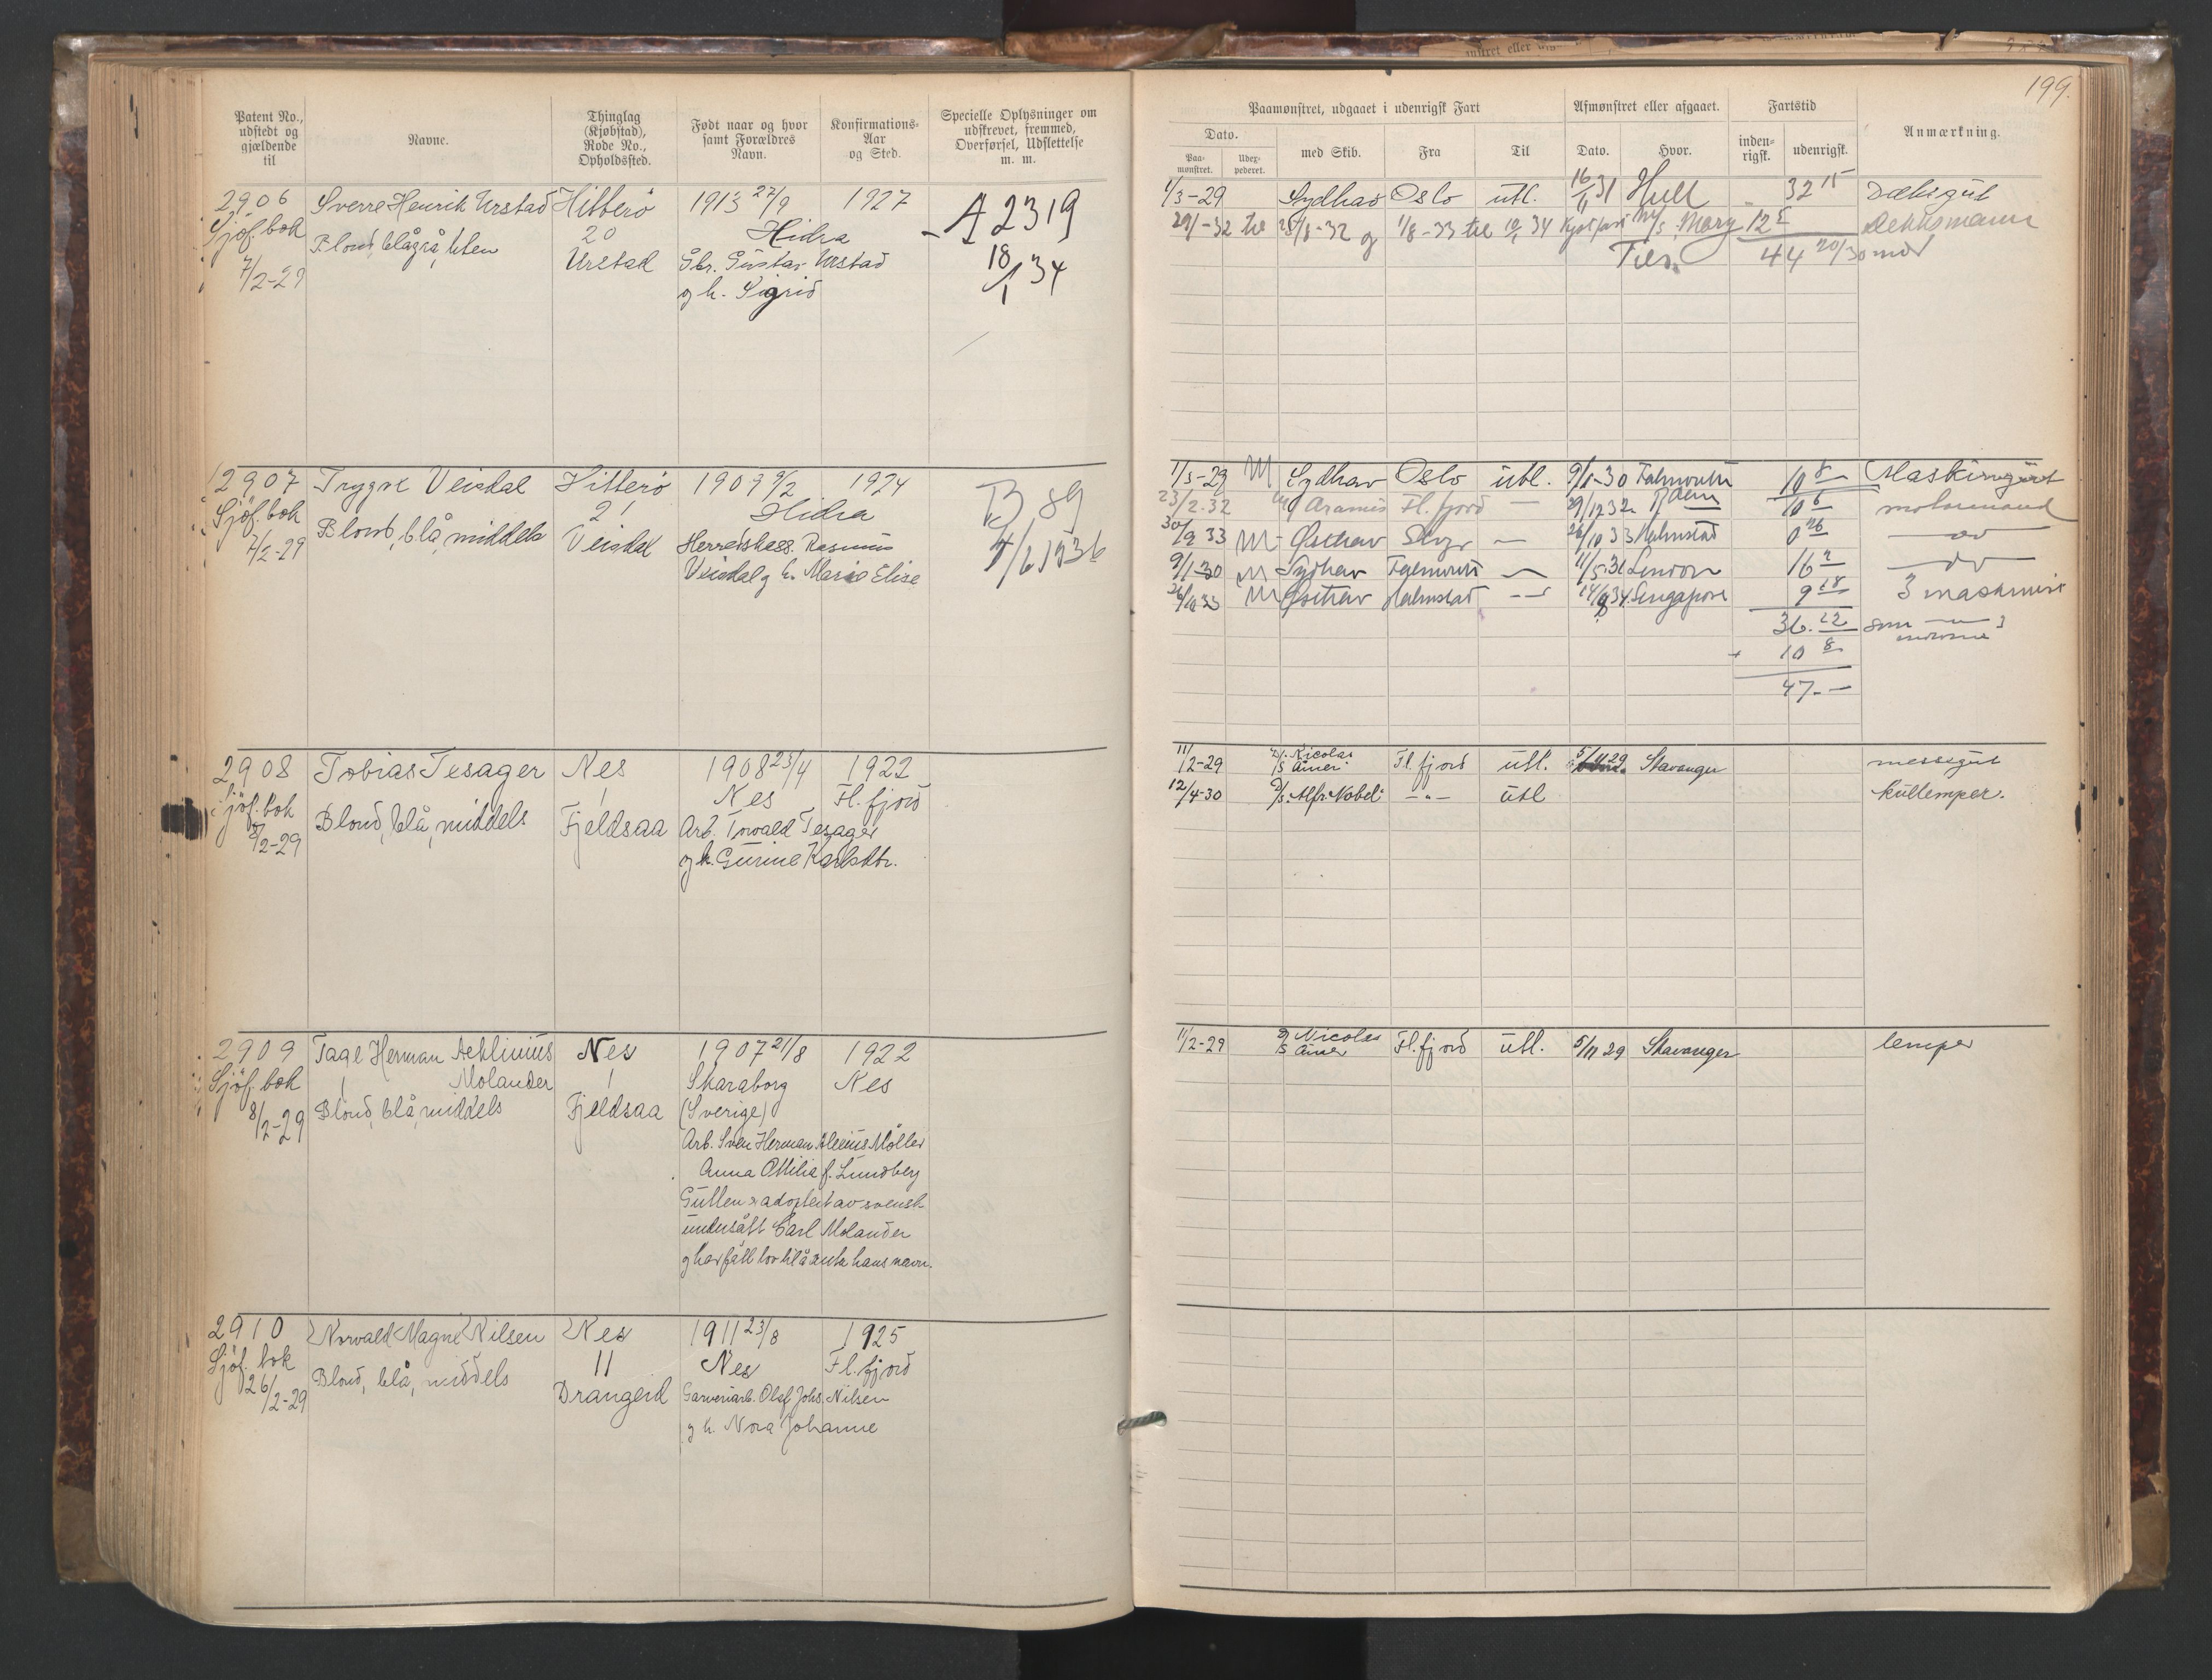 199.
Patent No., udstedt og gjældende til
Navne.
Thinglag (Kjøbstad), Rode No., Opholdssted.
Født naar og hvor samt Forældres Navn.
Konfirmations-Aar og Sted.
Specielle Oplysninger om udskrevet, fremmed, Overførsel, Udslettelse m. m.
Paamønstret, udgaaet i udenrigsk Fart
Afmønstret eller afgaaet.
Fartstid
Anmærkning.
Dato.
Paa-mønstret.
Udex-pederet.
med Skib.
Fra
Til
Dato.
Hvor.
inden-rigsk.
udenrigsk.
2906 Sverre Henrik Urstad Hitterø 1913 27/9 1927
Sjøf. bok Blond, blågrå, liten 20 Hidra
7/2-29 Urstad Gbr. Gustav Urstad
g h. Sigrid
A 2319
18/1 34
1/3-29 Sydhav Oslo utl. 16/11 31 Hull 32 15 Dæksgut
til 28/8-32 og 1/8-33 til 34 M/S Mary 12 Dekksmann
Tils. 44 20/30 mnd
2907 Trygve Veisdal Hitterø 1909 9/2 1924
Sjøf. bok Blond, blå, middels 21 Hidra
7/2-29 Veisdal Herredskass. Rasmus
Veisdal g h. Marie Elise
B 89
1/3-29 M Sydhav Oslo utl. 9/1-30 Falmouth 10 8 Maskingut
23/2-32 Aramis Fl. fjord — 29/12 32 10 6 motormand
30/9 33 M Østhav — 26/10 33 Halmstad 0 26 — do —
9/1-30 M Sydhav Falmouth — 11/5-31 London 16 2 — do —
26/10 33 M Østhav Halmstad — 34 Singapore 9 18 3 maskinist
36. 22 som
+ 10 8
47. —
2908 Tobias Tesager Nes 1908 23/4 1922
Sjøf. bok Blond, blå, middels 1 Nes Fl. fjord
8/2-29 Fjeldsaa Arb. Torvald Tesager
g h. Gurine Karlsdtr.
11/2-29 D/S Nicolas Amer Fl. fjord utl. 5/11 29 Stavanger messegut
12/4-30 D/S "Alfr. Nobel" — " — utl kullemper.
2909 Tage Herman Nes 1907 21/8 1922
Sjøf. bok Molander 1 Skaraborg Nes
8/2-29 Blond, blå, middels Fjeldsaa (Sverige)
Arb. Sven Herman Møller
Anna Ottilia f. Lundberg
Gutten er adoptert av svensk
undersått Carl Molander
g har fått lov til å anta hans navn.
11/2-29 D/S Nicolas Amer Fl. fjord utl. 5/11 29 Stavanger lemper
2910 Norvald Magne Nilsen Nes 1911 23/8 1925
Sjøf. bok Blond, blå, middels 11 Nes Fl. fjord
26/2-29 Drangeid Garveriarb. Olaf Johs. Nilsen
g h. Nora Johanne